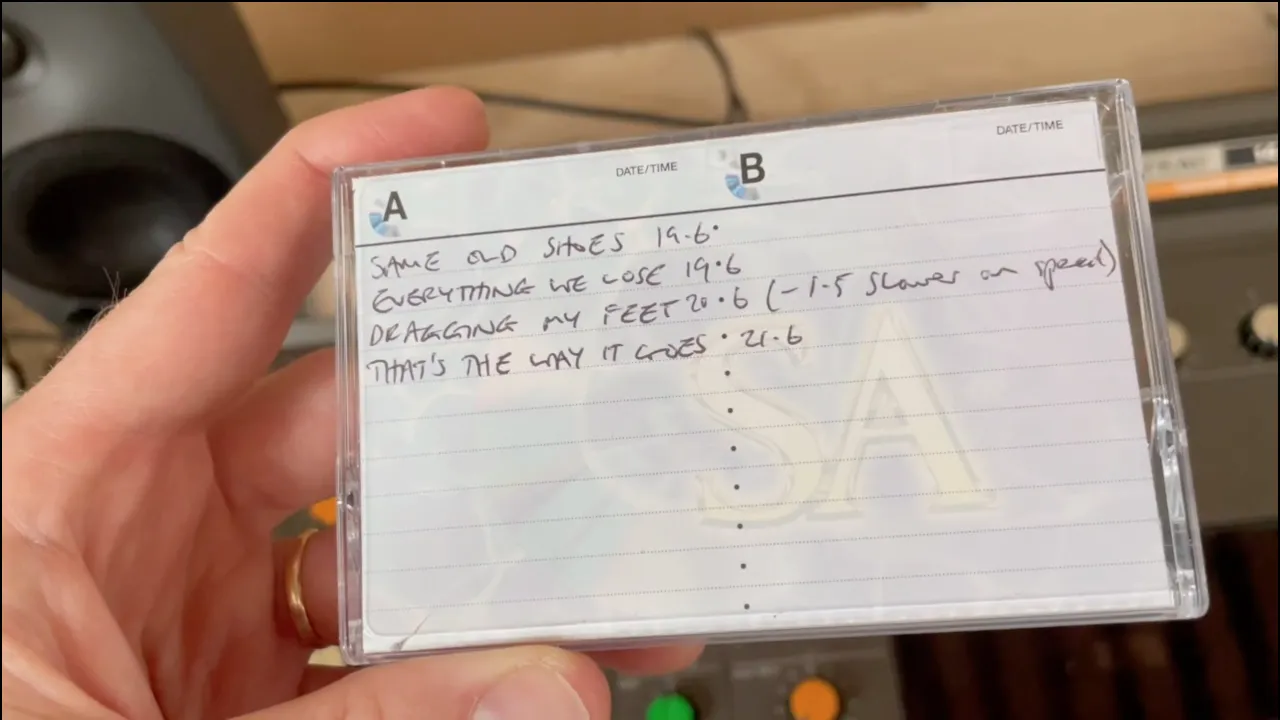 A DATE/TIME B DATE/TIME
SAME OLD SHOES 19.6
EVERYTHING WE LOSE 19.6
DRAGGING MY FEET 20.6 (-1.5 slower on speed)
THAT'S THE WAY IT GOES 21.6
SA